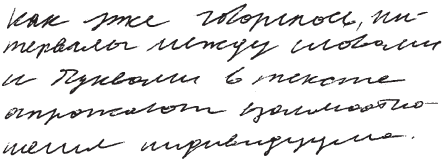 Как уже говорилось, ин-
тервалы между словами
и буквами в тексте
отражают взаимоотно-
шения индивидуума.